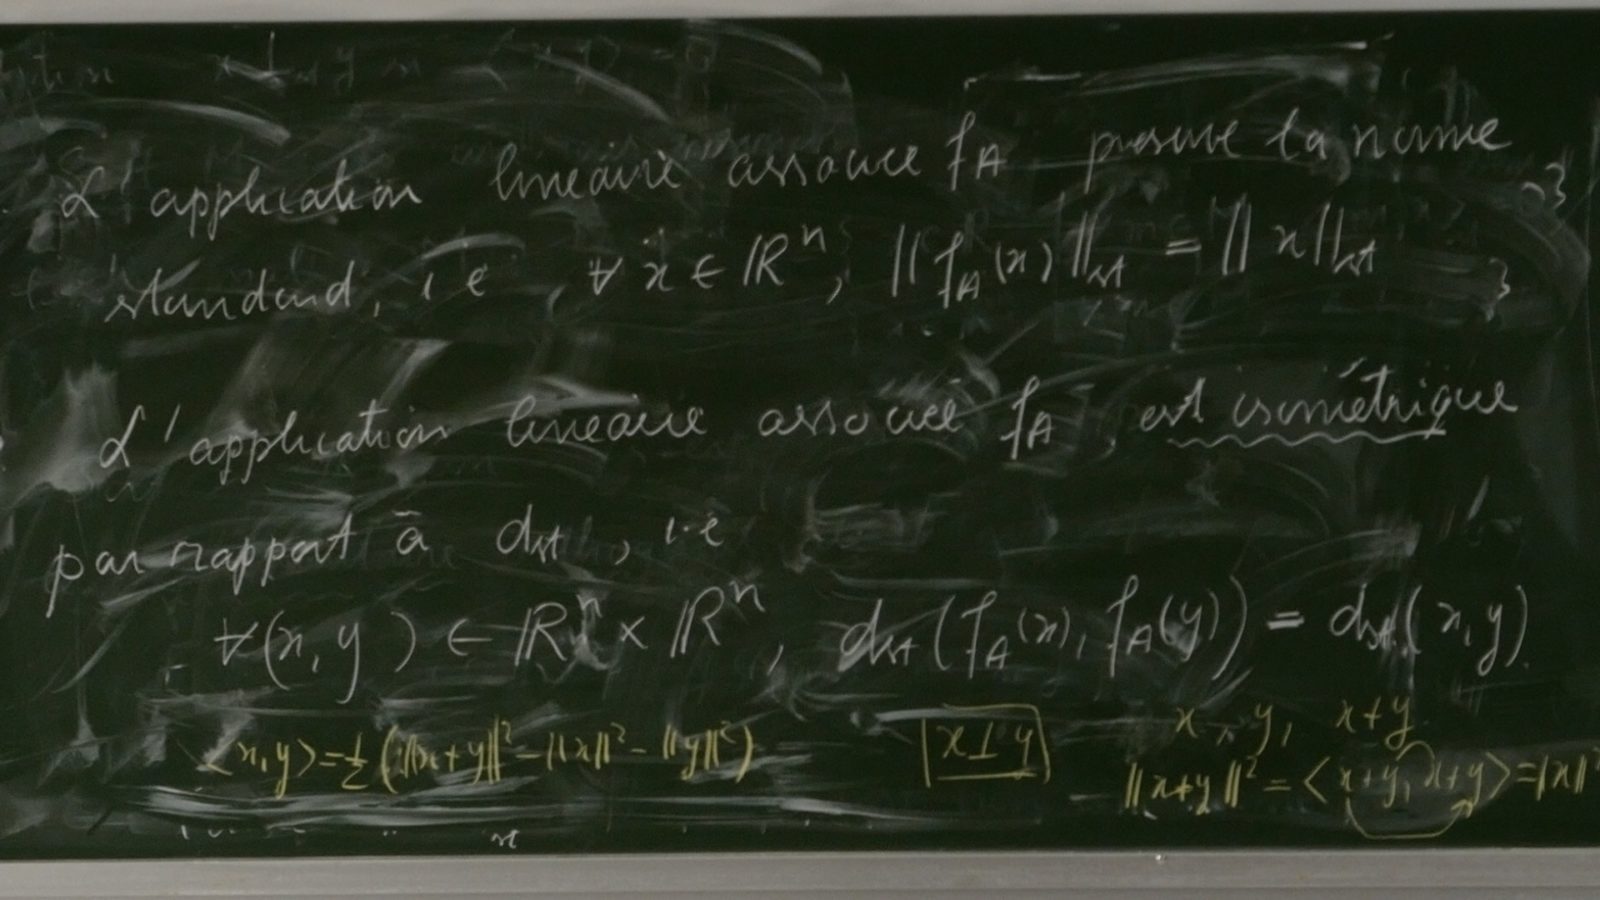 L'application linéaire associée f_A préserve la norme
standard, i.e ∀ x ∈ ℝⁿ, ||f_A(x)||_st = ||x||_st
L'application linéaire associée f_A est isométrique
par rapport à d_st, i.e
∀(x,y) ∈ ℝⁿ × ℝⁿ, d_st(f_A(x), f_A(y)) = d_st(x,y).
<x,y> = ½(||x+y||² - ||x||² - ||y||²) x ⊥ y x, y, x+y
||x+y||² = <x+y, x+y> = ||x||²